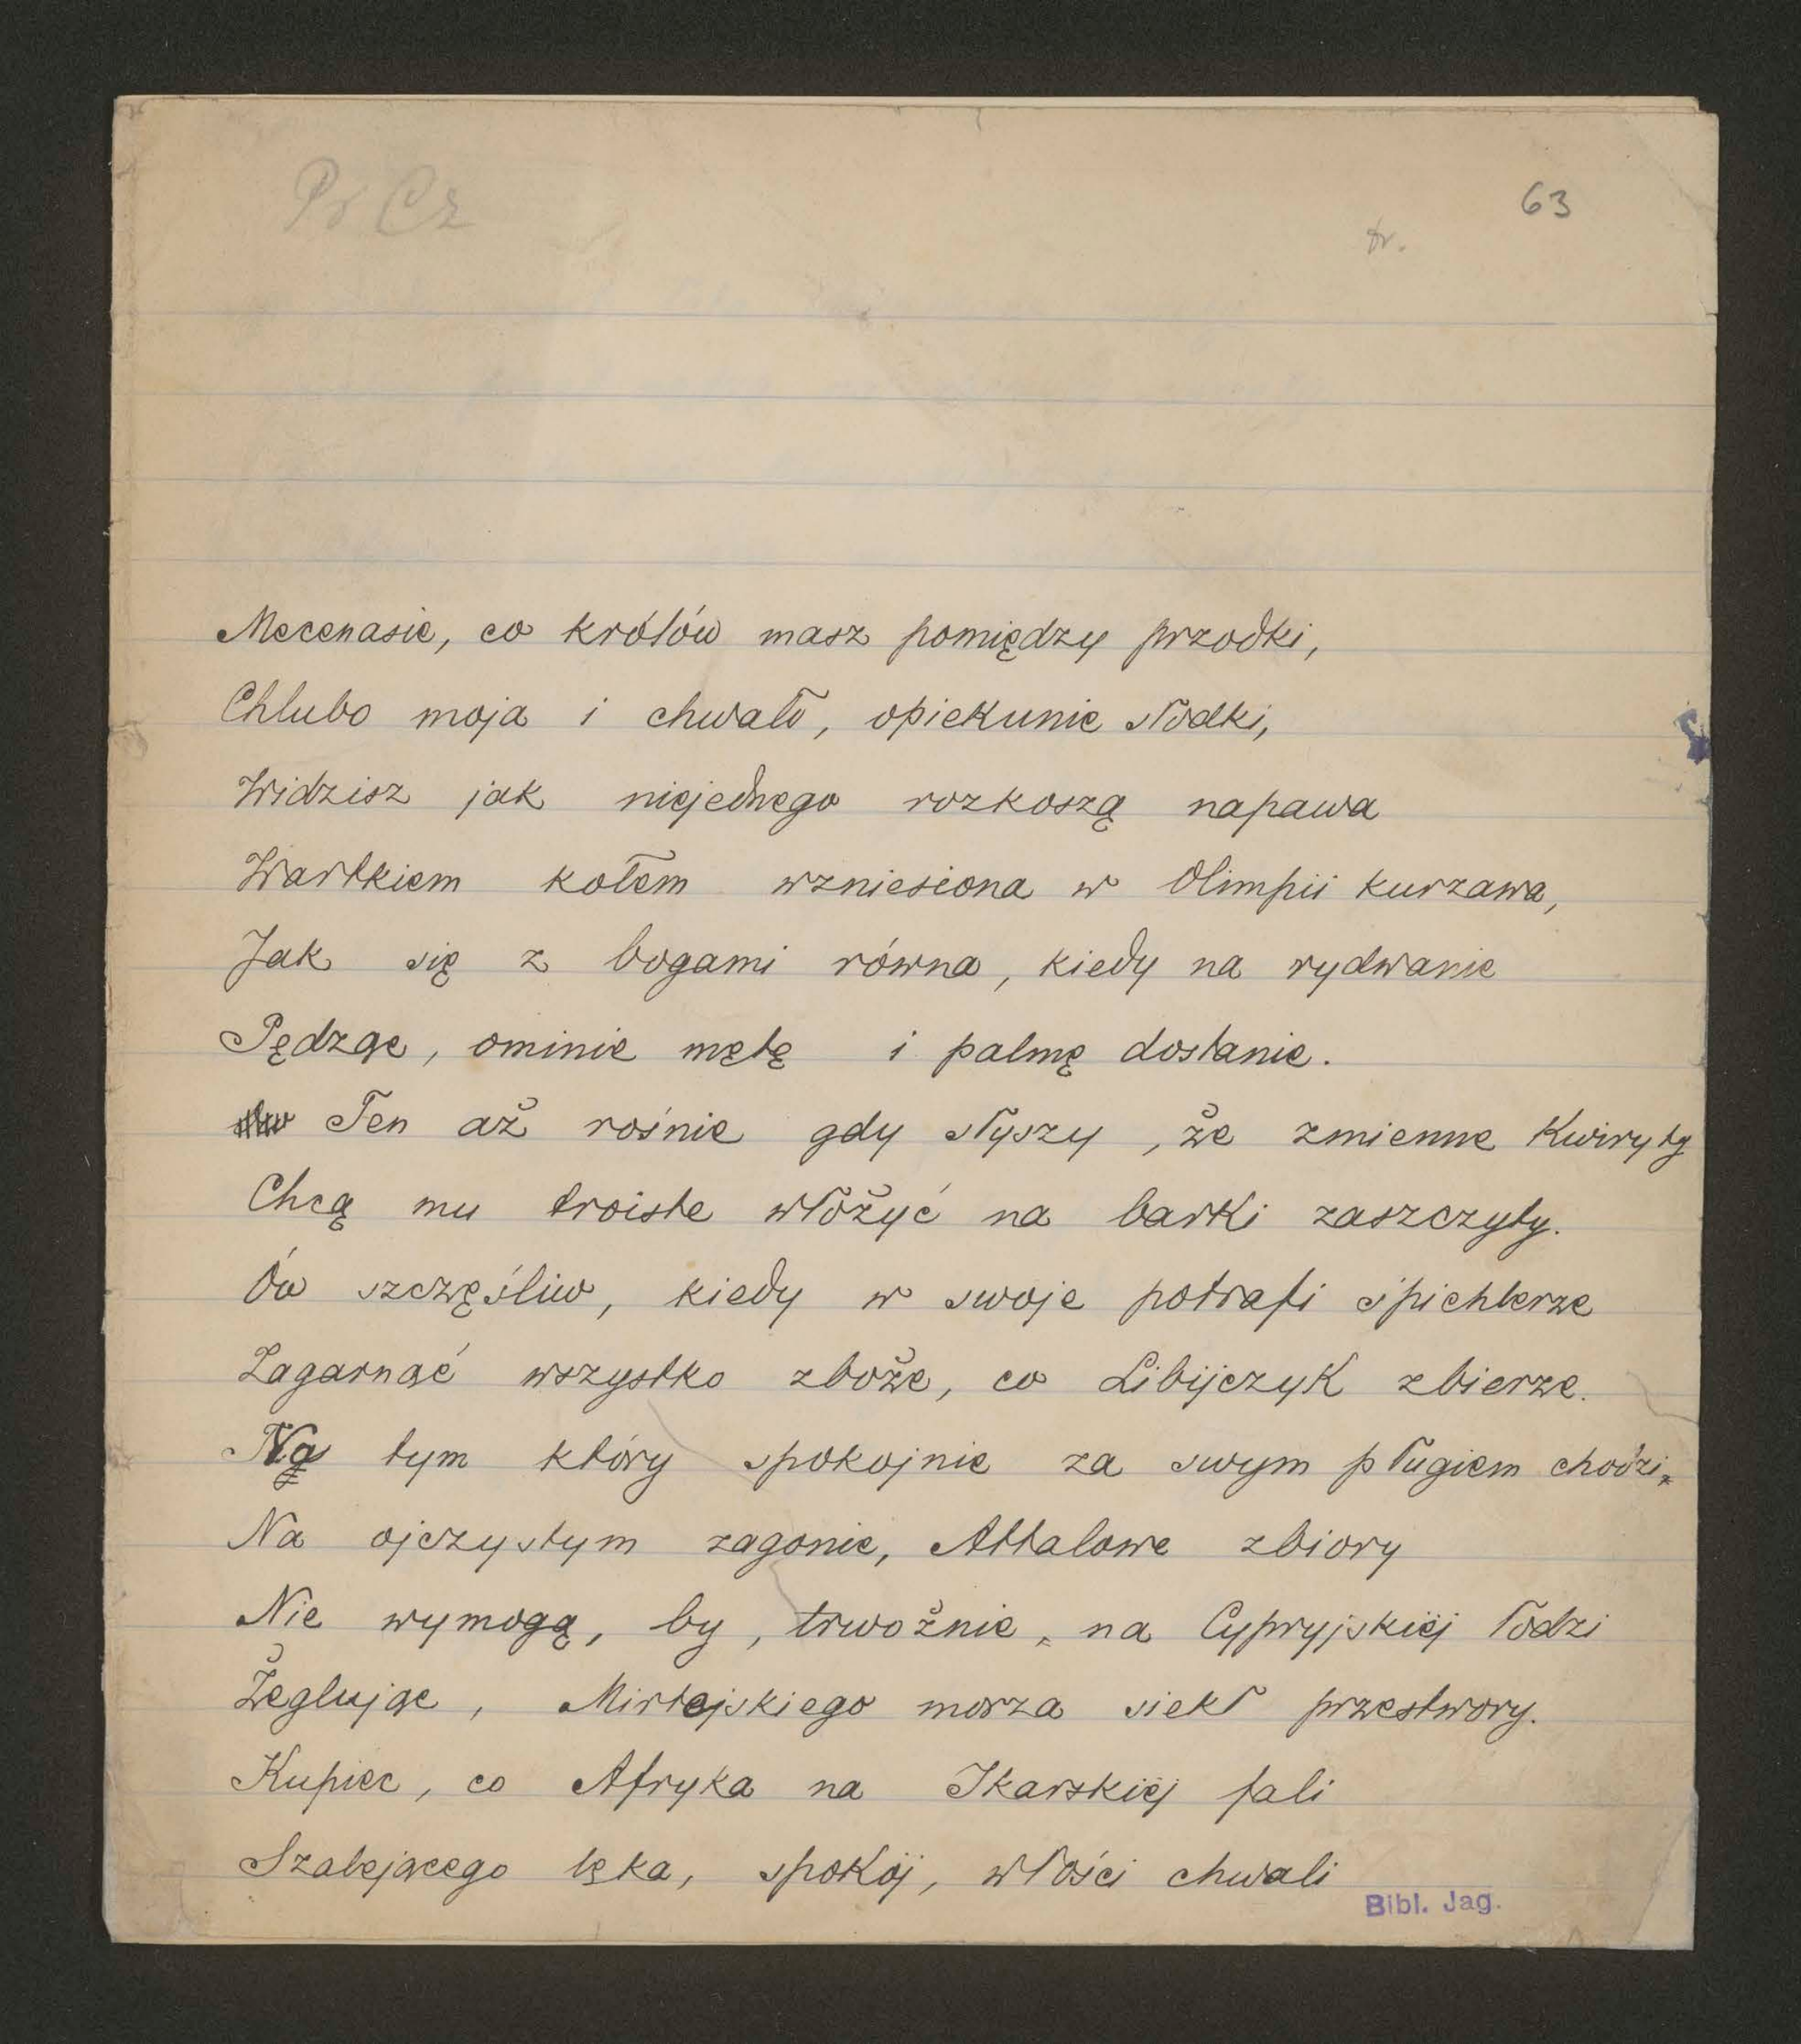 Pr Cz
63
tr.
Mecenasie, co królów masz pomiędzy przodki,
Chlubo moja i chwało, opiekunie słodki,
Widzisz jak niejednego rozkoszą napawa
Wartkiem kołem wzniesiona w Olimpii kurzawa,
Jak się z bogami równa, kiedy na rydwanie
Pędząc, ominie metę i palmę dostanie.
Ten aż rośnie gdy słyszy, że zmienne Kwiryty
Chcą mu troiste włożyć na barki zaszczyty.
Ów szczęśliw, kiedy w swoje potrafi śpichlerze
Zagarnąć wszystko zboże, co Libijczyk zbierze.
Na tym który spokojnie za swym pługiem chodzi,
Na ojczystym zagonie, Attalowe zbiory
Nie wymogą, by, trwożnie, na Cypryjskiéj łodzi
Żeglując, Mirtejskiego morza siekł przestwory.
Kupiec, co Afryka na Ikarskiéj fali
Szalejącego lęka, spokój, włości chwali
Bibl. Jag.